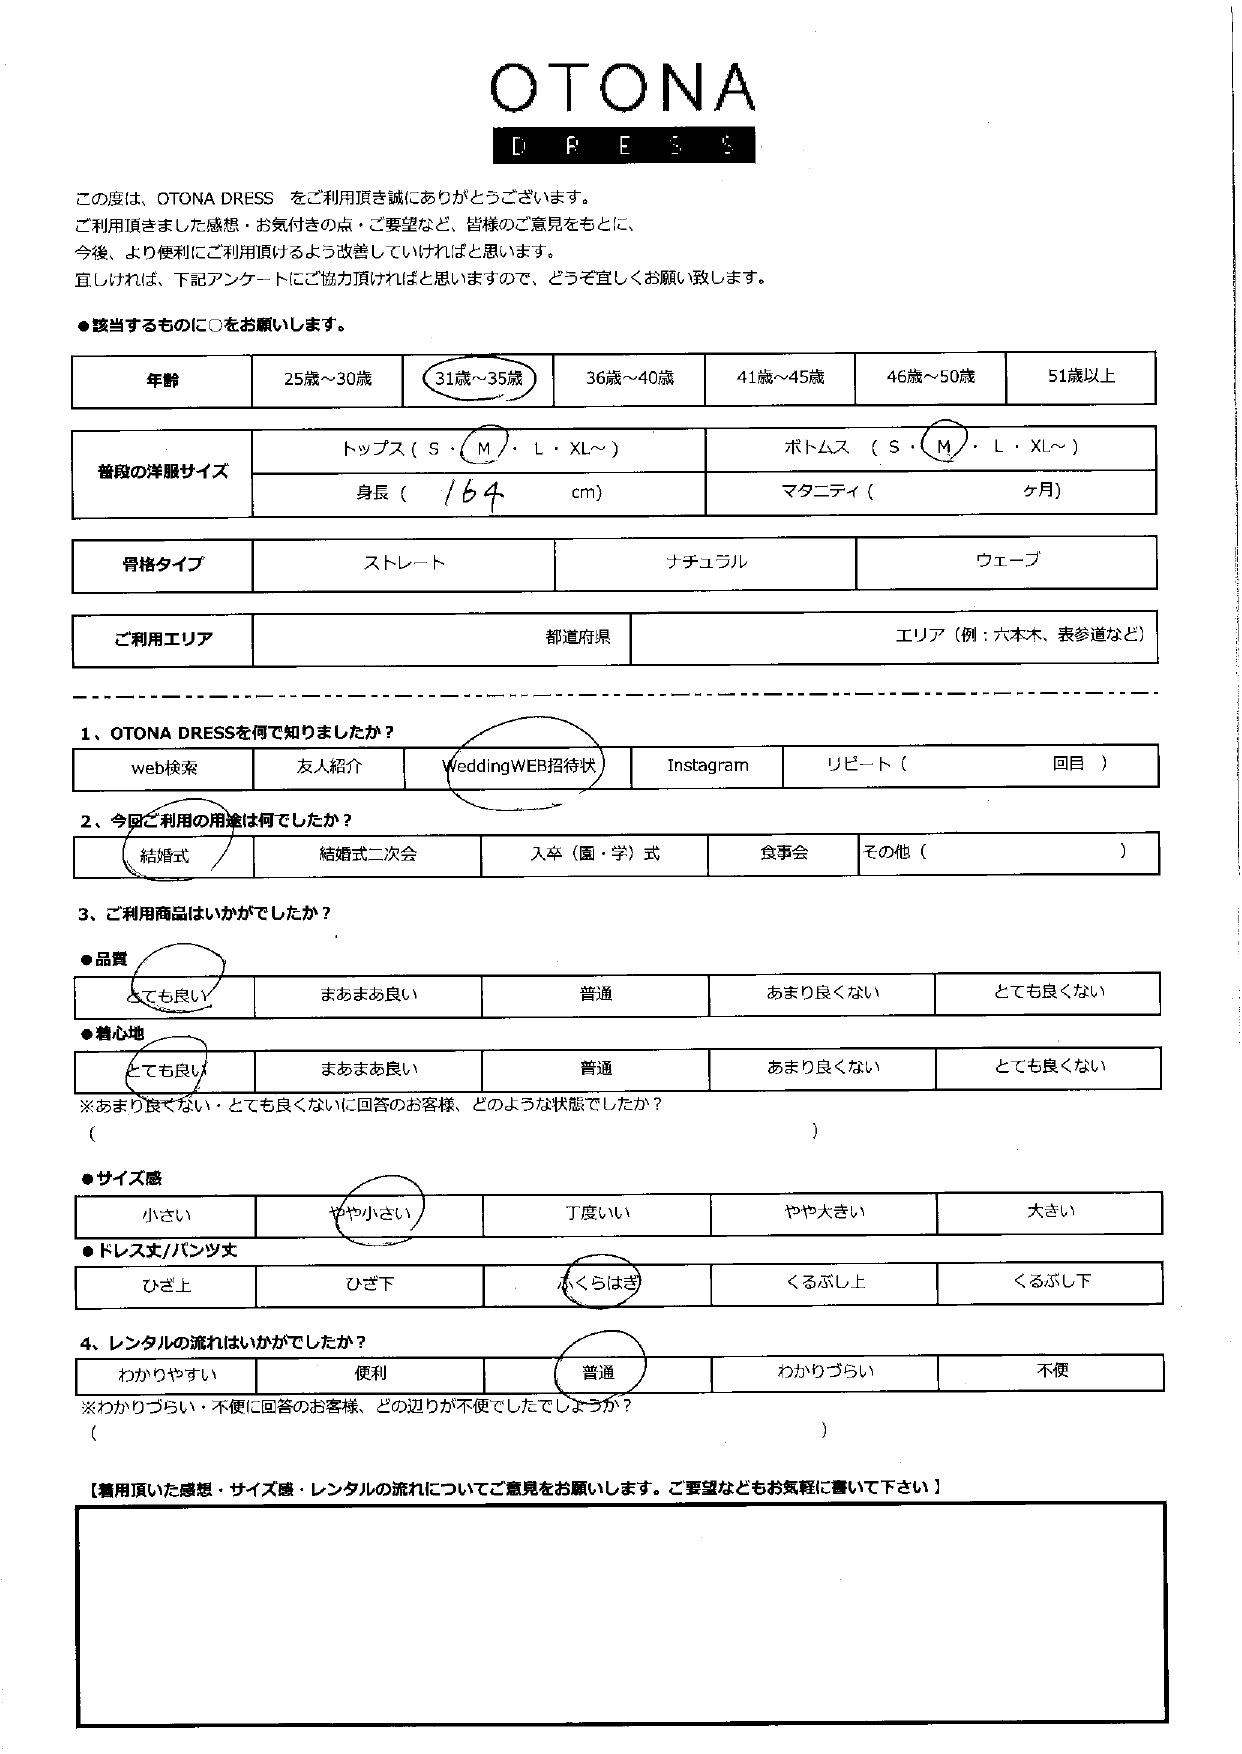 OTONA
DRESS
この度は、OTONA DRESS　をご利用頂き誠にありがとうございます。
ご利用頂きました感想・お気付きの点・ご要望など、皆様のご意見をもとに、
今後、より便利にご利用頂けるよう改善していければと思います。
宜しければ、下記アンケートにご協力頂ければと思いますので、どうぞ宜しくお願い致します。
●該当するものに○をお願いします。
年齢 25歳～30歳 31歳～35歳 36歳～40歳 41歳～45歳 46歳～50歳 51歳以上
普段の洋服サイズ トップス ( S ・ M ・ L ・ XL～ ) ボトムス ( S ・ M ・ L ・ XL～ )
身長 ( 164 cm) マタニティ ( ヶ月)
骨格タイプ ストレート ナチュラル ウェーブ
ご利用エリア 都道府県 エリア（例：六本木、表参道など）
1、OTONA DRESSを何で知りましたか？
web検索 友人紹介 WeddingWEB招待状 Instagram リピート ( 回目 )
2、今回ご利用の用途は何でしたか？
結婚式 結婚式二次会 入卒（園・学）式 食事会 その他 ( )
3、ご利用商品はいかがでしたか？
●品質
とても良い まあまあ良い 普通 あまり良くない とても良くない
●着心地
とても良い まあまあ良い 普通 あまり良くない とても良くない
※あまり良くない・とても良くないに回答のお客様、どのような状態でしたか？
( )
●サイズ感
小さい やや小さい 丁度いい やや大きい 大きい
●ドレス丈/パンツ丈
ひざ上 ひざ下 ふくらはぎ くるぶし上 くるぶし下
4、レンタルの流れはいかがでしたか？
わかりやすい 便利 普通 わかりづらい 不便
※わかりづらい・不便に回答のお客様、どの辺りが不便でしたでしょうか？
( )
【着用頂いた感想・サイズ感・レンタルの流れについてご意見をお願いします。ご要望などもお気軽に書いて下さい】